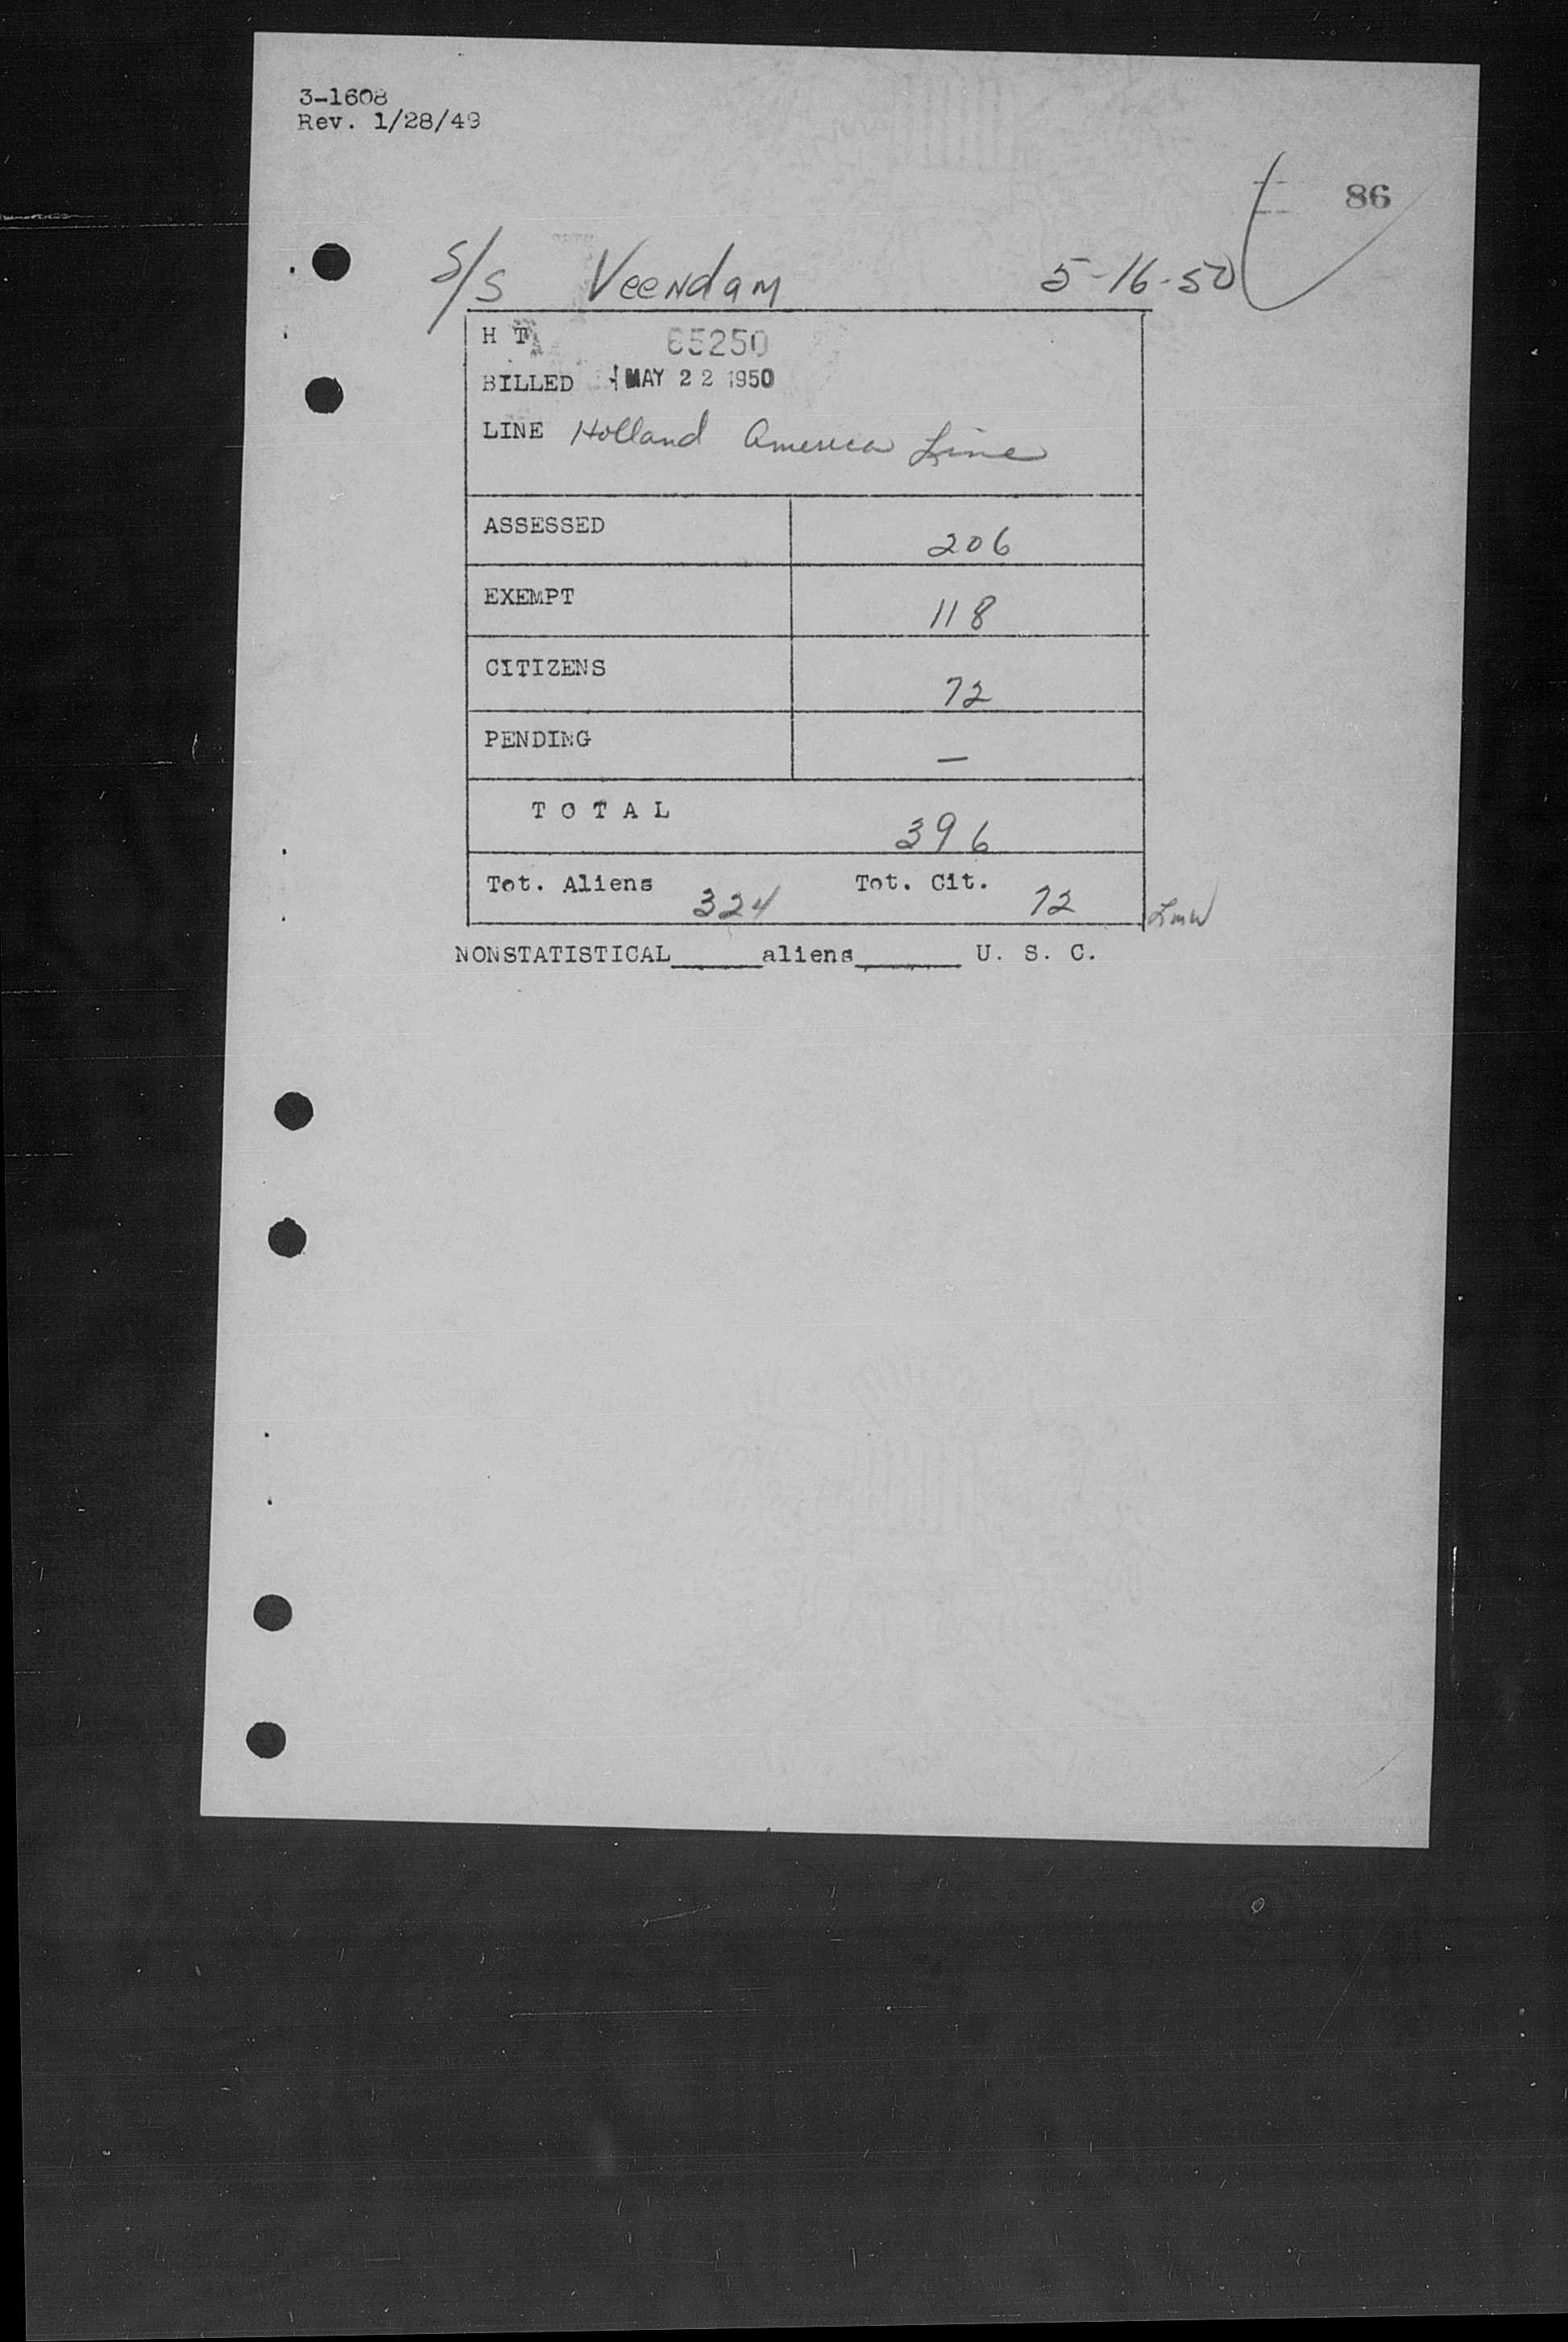 3-1608
Rev. 1/28/49
86
S/S Veendam 5-16-50
H T 65250
BILLED MAY 22 1950
LINE Holland America Line
ASSESSED 206
EXEMPT 118
CITIZENS 72
PENDING —
T O T A L 396
Tot. Aliens 324 Tot. Cit. 72
LMW
NONSTATISTICAL______aliens_______ U. S. C.